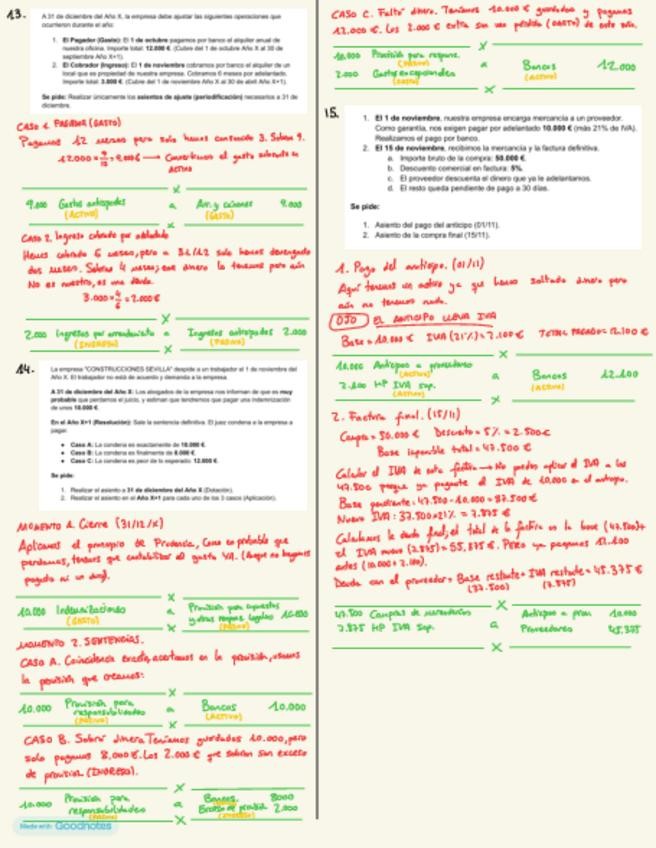 13.
A 31 de diciembre del Año X, la empresa debe ajustar las siguientes operaciones que
ocurrieron durante el año:
1. El Pagador (Gasto): El 1 de octubre pagamos por banco el alquiler anual de
nuestra oficina. Importe total: 12.000 €. (Cubre del 1 de octubre Año X al 30 de
septiembre Año X+1).
2. El Cobrador (Ingreso): El 1 de noviembre cobramos por banco el alquiler de un
local que es propiedad de nuestra empresa. Cobramos 6 meses por adelantado.
Importe total: 3.000 €. (Cubre del 1 de noviembre Año X al 30 de abril Año X+1).
Se pide: Realizar únicamente los asientos de ajuste (periodificación) necesarios a 31 de
diciembre.
CASO 1. PAGADOR (GASTO)
Pagamos 12 meses pero solo hemos consumido 3. Sobran 9.
12.000 x 9/12 = 9.000€ → Convertimos el gasto sobrante en
ACTIVO
X
9.000 Gastos anticipados a Arr. y cánones 9.000
(ACTIVO) (GASTO)
X
CASO 2. Ingreso cobrado por adelantado
Hemos cobrado 6 meses, pero a 31/12 solo hemos devengado
dos meses. Sobran 4 meses, ese dinero lo tenemos pero aún
No es nuestro, es una deuda.
3.000 x 4/6 = 2.000€
X
2.000 Ingresos por arrendamiento a Ingresos anticipados 2.000
(INGRESO) (PASIVO)
X
14.
La empresa "CONSTRUCCIONES SEVILLA" despide a un trabajador el 1 de noviembre del
Año X. El trabajador no está de acuerdo y demanda a la empresa.
A 31 de diciembre del Año X: Los abogados de la empresa nos informan de que es muy
probable que perdamos el juicio, y estiman que tendremos que pagar una indemnización
de unos 10.000 €.
En el Año X+1 (Resolución): Sale la sentencia definitiva. El juez condena a la empresa a
pagar:
• Caso A: La condena es exactamente de 10.000 €.
• Caso B: La condena es finalmente de 8.000 €.
• Caso C: La condena es peor de lo esperado: 12.000 €.
Se pide:
1. Realizar el asiento a 31 de diciembre del Año X (Dotación).
2. Realizar el asiento en el Año X+1 para cada uno de los 3 casos (Aplicación).
MOMENTO 1. Cierre (31/12/X)
Aplicamos el principio de Prudencia, Como es probable que
perdamos, tenemos que contabilizar el gasto YA. (Aunque no hayamos
pagado ni un duro).
X
10.000 Indemnizaciones a Provisión para impuestos
(GASTO) y otras respons. legales 10.000
(PASIVO)
X
MOMENTO 2. SENTENCIAS.
CASO A. Coincidencia exacta, acertamos en la provisión, usamos
la provisión que creamos:
X
10.000 Provisión para a Bancos 10.000
responsabilidades (ACTIVO)
(PASIVO)
X
CASO B. Sobró dinero. Teníamos guardados 10.000, pero
solo pagamos 8.000€. Los 2.000 € que sobran son exceso
de provisión (INGRESO).
X
10.000 Provisión para a Bancos 8000
responsabilidades Exceso de provisi. 2.000
(PASIVO) (INGRESO)
X
Made with Goodnotes
CASO C. Faltó dinero. Teníamos 10.000 € guardados y pagamos
12.000 €. Los 2.000 € extra son una pérdida (GASTO) de este año.
X
10.000 Provisión para respons. a Bancos 12.000
(PASIVO) (ACTIVO)
2.000 Gastos excepcionales
(GASTO)
X
15.
1. El 1 de noviembre, nuestra empresa encarga mercancía a un proveedor.
Como garantía, nos exigen pagar por adelantado 10.000 € (más 21% de IVA).
Realizamos el pago por banco.
2. El 15 de noviembre, recibimos la mercancía y la factura definitiva.
a. Importe bruto de la compra: 50.000 €.
b. Descuento comercial en factura: 5%.
c. El proveedor descuenta el dinero que ya le adelantamos.
d. El resto queda pendiente de pago a 30 días.
Se pide:
1. Asiento del pago del anticipo (01/11).
2. Asiento de la compra final (15/11).
1. Pago del anticipo. (01/11)
Aquí tenemos un activo ya que hemos soltado dinero pero
aún no tenemos nada.
OJO EL ANTICIPO LLEVA IVA
Base = 10.000 € IVA (21%) = 2.100 € TOTAL PAGADO = 12.100 €
X
10.000 Anticipos a proveedores a Bancos 12.100
(ACTIVO) (ACTIVO)
2.100 HP IVA Sop.
(ACTIVO)
X
2. Factura final. (15/11)
Compra = 50.000 € Descuento = 5% = 2.500€
Base imponible total = 47.500€
Calcular el IVA de esta factura → No puedes aplicar el IVA a los
47.500 porque ya pagaste el IVA de 10.000 en el anticipo.
Base pendiente: 47.500 - 10.000 = 37.500 €
Nuevo IVA: 37.500 x 21% = 7.875 €
Calculamos la deuda final, el total de la factura es la base (47.500) +
el IVA nuevo (7.875) = 55.375 €. Pero ya pagamos 12.100
antes (10.000 + 2.100).
Deuda con el proveedor = Base restante + IVA restante = 45.375 €
(37.500) (7.875)
X
47.500 Compras de mercaderías a Anticipos a prov. 10.000
7.875 HP IVA Sop. Proveedores 45.375
X